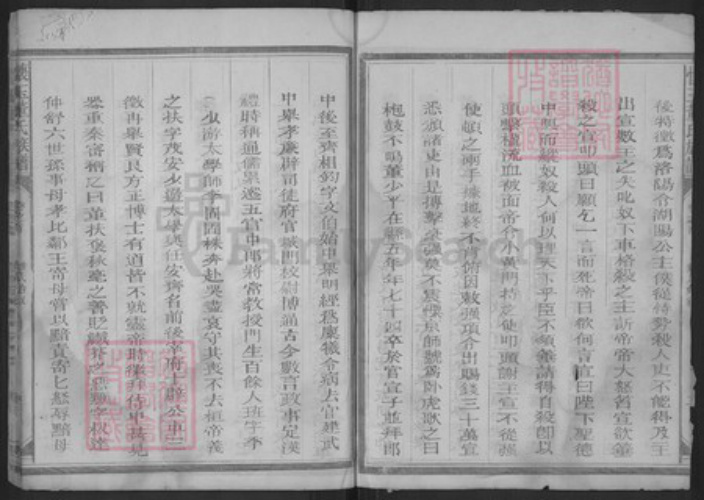 後特徵爲洛陽令湖陽公主僕從恃勢殺人吏不能得及主
出宣數主之失叱奴下車格殺之主訴帝帝大怒召宣欲箠
殺之宣叩頭曰願乞一言而死帝曰欲何言宣曰陛下聖德
中興而縱奴殺人何以理天下乎臣不須箠請得自殺卽以
頭擊楹流血被面帝令小黃門持之使叩頭謝主宣不從强
使頓之兩手據地終不肯俯因敕强項令出賜錢三十萬宣
悉頒諸吏由是搏擊豪强莫不震慄京師號爲卧虎歌之曰
枹鼓不鳴董少平在縣五年年七十四卒於官宣子並拜郎
中後至齊相鈞字文伯始中舉明經爲廩犧令病去官建武
中舉孝廉辟司徒府官城門校尉博通古今數言政事定漢
禮時稱通儒累遷五官中郎將常敎授門生百餘人班字季
少游太學師李固固殊奔赴哭泣哀守其喪不去桓帝義
之扶字茂安少遊太學與任安齊名前後宰府十辟公車三
徵再舉賢良方正博士有道皆不就靈帝時徵拜侍中
重秦宓稱之曰董扶褒秋毫之善貶纖芥之惡
仲舒六世孫事母孝比鄰王寄母嘗以黯責寄匕怒辱黯母